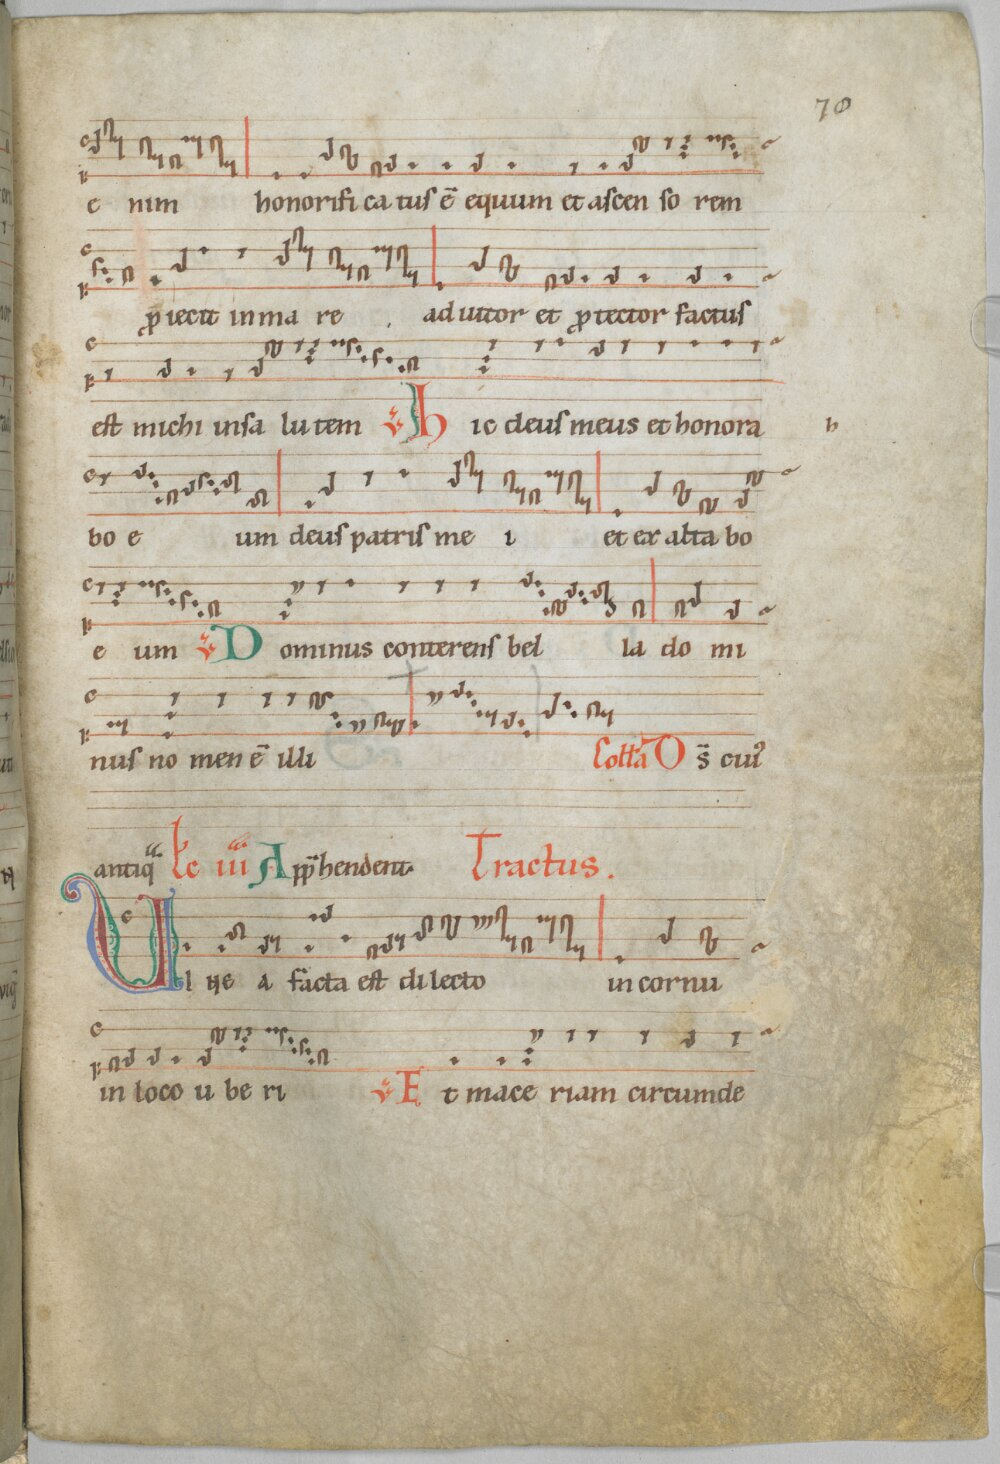 70
e nim honorifi ca tus ē equum et ascen so rem
p̱iecit in ma re adiutor et p̱tector factus
est michi insa lu tem hic deus meus et honora
bo e um deus patris me i et ex alta bo
e um Dominus conterens bel la do mi
nus no men ē illi Coll̄a O s̄ cui⁹
antiq̄ Lc iiii App̄hendent Tractus.
Vi ne a facta est dilecto in cornu
in loco u be ri Et mace riam circumde